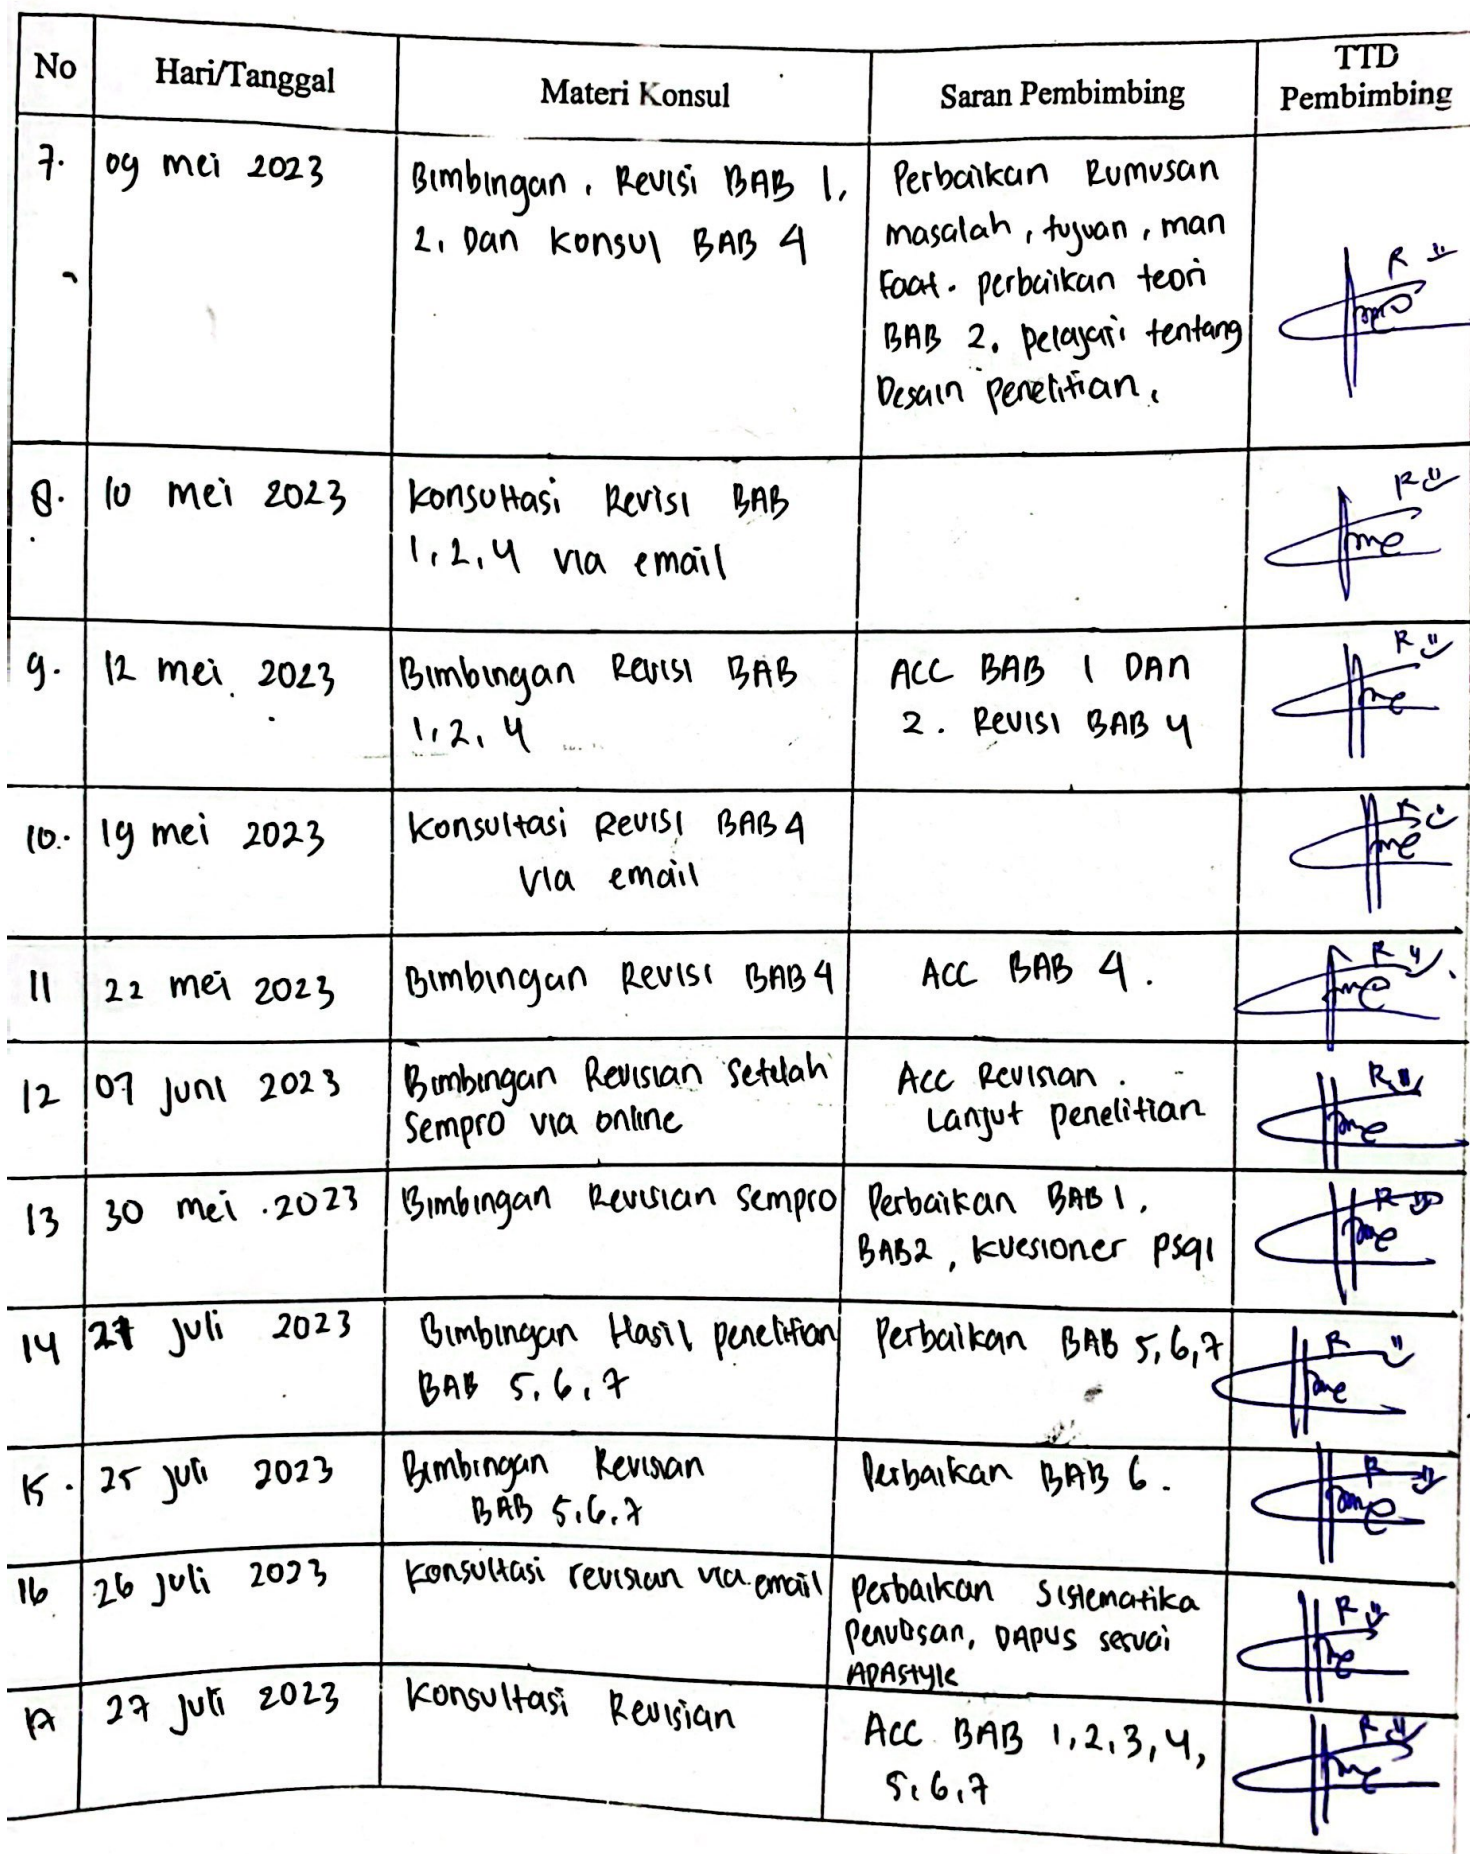 No Hari/Tanggal Materi Konsul Saran Pembimbing TTD Pembimbing
7. 09 mei 2023
Bimbingan, Revisi BAB 1,
2, Dan Konsul BAB 4
Perbaikan Rumusan
masalah, tujuan, man
Faat. perbaikan teori
BAB 2. pelajari tentang
Desain penelitian.
8. 10 mei 2023
Konsultasi Revisi BAB
1,2,4 via email
9. 12 mei 2023
Bimbingan Revisi BAB
1,2,4
ACC BAB 1 DAN
2. Revisi BAB 4
10. 19 mei 2023
Konsultasi Revisi BAB 4
via email
11 22 mei 2023
Bimbingan Revisi BAB 4
ACC BAB 4.
12 07 Juni 2023
Bimbingan Revisian Setelah
Sempro via online
Acc Revisian.
Lanjut penelitian
13 30 mei 2023
Bimbingan Revisian Sempro
Perbaikan BAB 1,
BAB2, kuesioner psqi
14 Juli 2023
Bimbingan Hasil penelitian
BAB 5,6,7
Perbaikan BAB 5,6,7
15. 25 juli 2023
Bimbingan Revisian
BAB 5,6,7
Perbaikan BAB 6.
16 26 Juli 2023
Konsultasi revisian via email
Perbaikan Sistematika
Penulisan, DAPUS sesuai
APAStyle
17 27 Juli 2023
Konsultasi Revisian
ACC BAB 1,2,3,4,
5,6,7